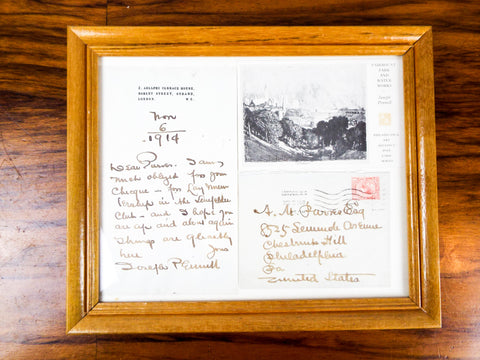 3, ADELPHI TERRACE HOUSE,
ROBERT STREET, STRAND,
LONDON. W.C.
Nov
6
1914
Dear Parvis. I am
much obliged for your
Cheque – for Lay Mem-
bership in the
Club – and I hope you
are up and about again
Things are
here Yours
Joseph Pennell
FAIRMOUNT
PARK
AND
WATER
WORKS
Joseph
Pennell
PHILADELPHIA
ART
ALLIANCE
POST
CARD
SERIES
A. W. Parvis Esq
Seminole Avenue
Chestnut Hill
Philadelphia
Pa
United States